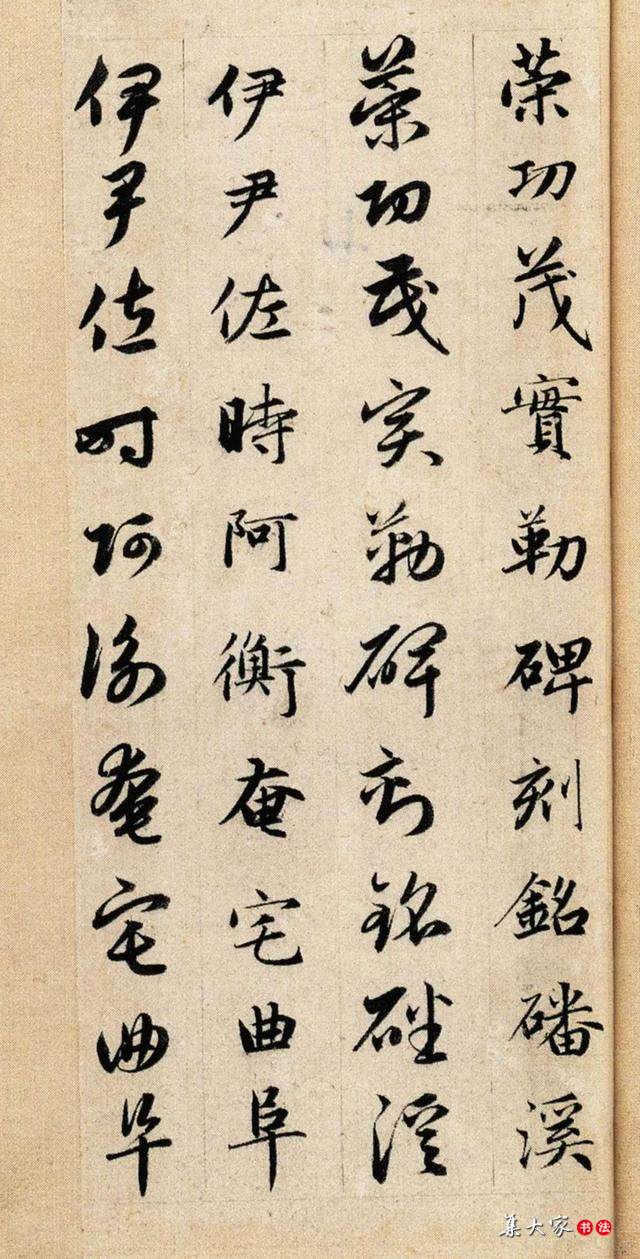 荣功茂實勒碑刻銘磻溪
荣功茂实勒碑刻銘磻溪
伊尹佐時阿衡奄宅曲阜
伊尹佐时阿衡奄宅曲阜
集大家書法